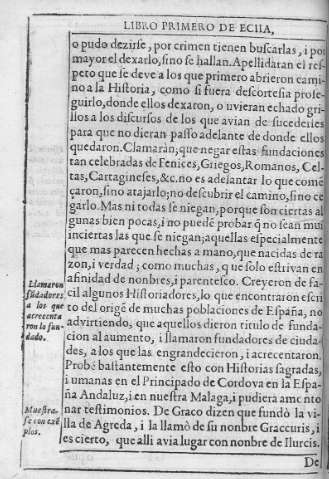 LIBRO PRIMERO DE ECIIA,
o pudo dezirse, por crimen tienen buscarlas, i por
mayor el dexarlo, sino se hallan. Apellidaràn el res-
peto que se deve a los que primero abrieron cami-
no a la Historia, como si fuera descortesia prose-
guirlo, donde ellos dexaron, o uvieran echado gri-
llos a los discursos de los que avian de sucederles
para que no dieran passo adelante de donde ellos
quedaron. Clamaràn; que negar estas fundaciones
tan celebradas de Fenices, Griegos, Romanos, Cel-
tas, Cartagineses, &c. no es adelantar lo que comē
çaron, sino atajarlo; no descubrir el camino, sino ce
garlo. Mas ni todas se niegan, porque son ciertas al
gunas bien pocas, i no puede probar q̃ no sean mui
inciertas las que se niegan; aquellas especialmente
que mas parecen hechas a mano, que nacidas de ra
zon, i verdad; como muchas, que solo estrivan en
afinidad de nonbres, i parentesco. Creyeron de fa-
cil algunos Historiadores, lo que encontraron escri
to del origē de muchas poblaciones de España, no
advirtiendo, que aquellos dieron titulo de funda-
cion al aumento, i llamaron fundadores de ciuda-
des, a los que las engrandecieron, i acrecentaron.
Probè bastantemente esto con Historias sagradas,
i umanas en el Principado de Cordova en la Espa-
ña Andaluz, i en nuestra Malaga, i pudiera amonto
nar testimonios. De Graco dizen que fundò la vi-
lla de Agreda, i la llamò de su nonbre Graccuris, i
es cierto, que alli avia lugar con nonbre de Ilurcis.
De
Llamaron
fūdadores
a los que
acrecenta
ron lo fun-
dado.
Muestra-
se con exē
plos.